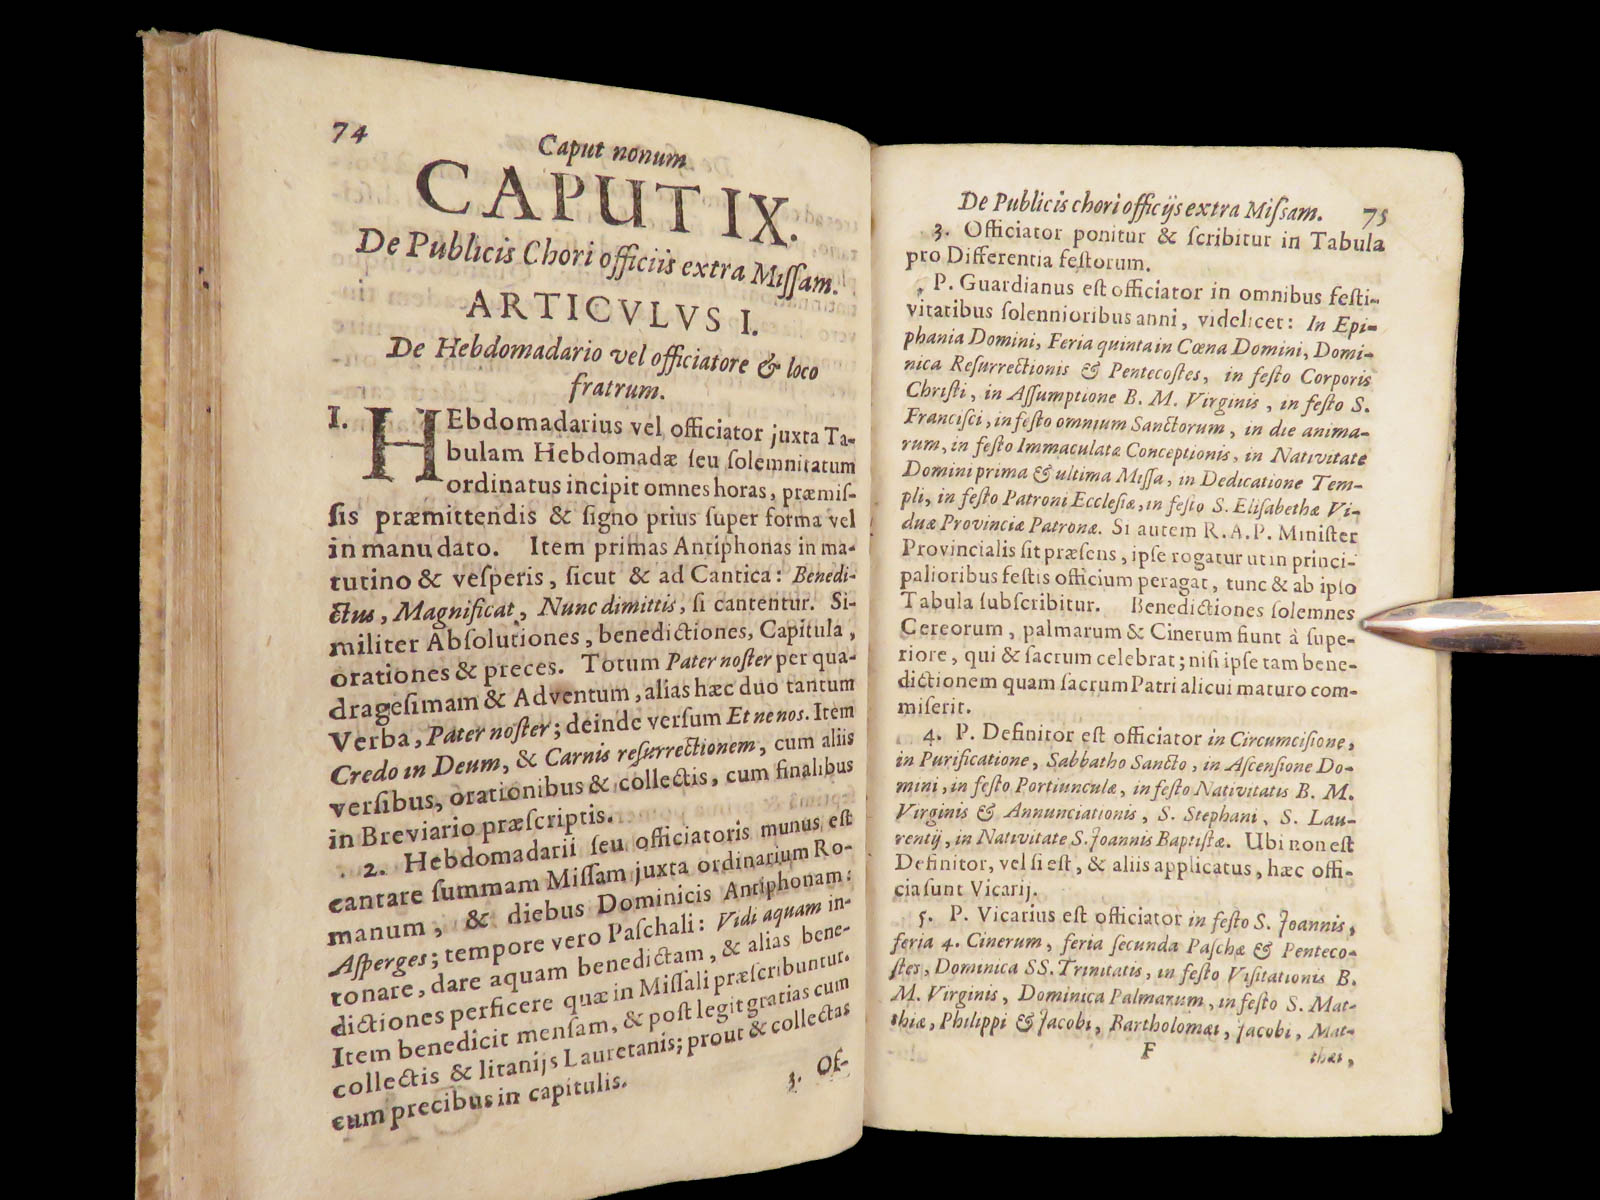 74
Caput nonum
CAPUT IX.
De Publicis Chori officiis extra Miſſam.
ARTICVLVS I.
De Hebdomadario vel officiatore & loco
fratrum.
1. HEbdomadarius vel officiator juxta Ta-
bulam Hebdomadæ ſeu ſolemnitatum
ordinatus incipit omnes horas, præmiſ-
ſis præmittendis & ſigno prius ſuper forma vel
in manu dato. Item primas Antiphonas in ma-
tutino & veſperis, ſicut & ad Cantica: Benedi-
ctus, Magnificat, Nunc dimittis, ſi cantentur. Si-
militer Abſolutiones, benedictiones, Capitula,
orationes & preces. Totum Pater noſter per qua-
drageſimam & Adventum, alias hæc duo tantum
Verba, Pater noſter; deinde verſum Et ne nos. Item
Credo in Deum, & Carnis reſurrectionem, cum aliis
verſibus, orationibus & collectis, cum finalibus
in Breviario præſcriptis.
2. Hebdomadarii ſeu officiatoris munus eſt
cantare ſummam Miſſam juxta ordinarium Ro-
manum, & diebus Dominicis Antiphonam:
Aſperges; tempore vero Paſchali: Vidi aquam in-
tonare, dare aquam benedictam, & alias bene-
dictiones perficere quæ in Miſſali præſcribuntur.
Item benedicit menſam, & poſt legit gratias cum
collectis & litanijs Lauretanis; prout & collectas
cum precibus in capitulis.
3. Of-
De Publicis chori officijs extra Miſsam. 75
3. Officiator ponitur & ſcribitur in Tabula
pro Differentia feſtorum.
P. Guardianus eſt officiator in omnibus feſti-
vitatibus ſolennioribus anni, videlicet: In Epi-
phania Domini, Feria quinta in Cœna Domini, Domi-
nica Reſurrectionis & Pentecoſtes, in feſto Corporis
Chriſti, in Aſſumptione B. M. Virginis, in feſto S.
Franciſci, in feſto omnium Sanctorum, in die anima-
rum, in feſto Immaculatæ Conceptionis, in Nativitate
Domini prima & ultima Miſſa, in Dedicatione Tem-
pli, in feſto Patroni Eccleſiæ, in feſto S. Eliſabethæ Vi-
duæ Provinciæ Patronæ. Si autem R. A. P. Miniſter
Provincialis ſit præſens, ipſe rogatur ut in princi-
palioribus feſtis officium peragat, tunc & ab ipſo
Tabula ſubſcribitur. Benedictiones ſolemnes
Cereorum, palmarum & Cinerum fiunt à ſupe-
riore, qui & ſacrum celebrat; niſi ipſe tam bene-
dictionem quam ſacrum Patri alicui maturo com-
miſerit.
4. P. Definitor eſt officiator in Circumciſione,
in Purificatione, Sabbatho Sancto, in Aſcenſione Do-
mini, in feſto Portiunculæ, in feſto Nativitatis B. M.
Virginis & Annunciationis, S. Stephani, S. Lau-
rentij, in Nativitate S. Joannis Baptiſtæ. Ubi non eſt
Definitor, vel ſi eſt, & aliis applicatus, hæc offi-
cia ſunt Vicarij.
5. P. Vicarius eſt officiator in feſto S. Joannis,
feria 4. Cinerum, feria ſecunda Paſchæ & Penteco-
ſtes, Dominica SS. Trinitatis, in feſto Viſitationis B.
M. Virginis, Dominica Palmarum, in feſto S. Mat-
thiæ, Philippi & Jacobi, Bartholomæi, Jacobi, Mat-
F
thæi,